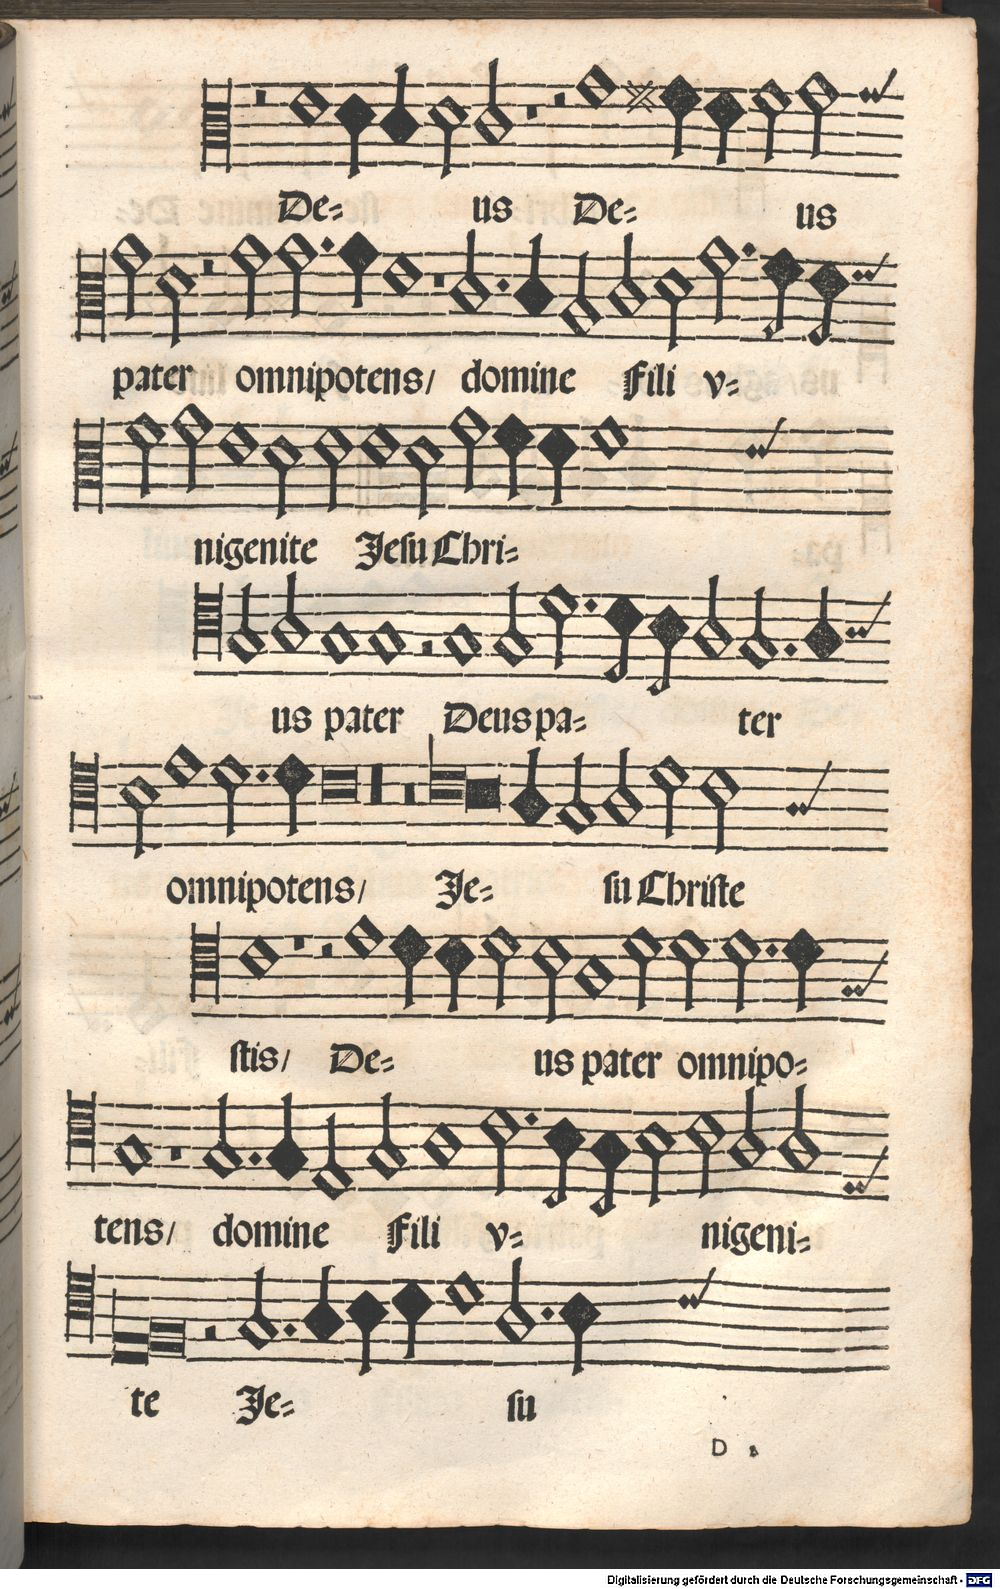 De= us De= us
pater omnipotens/ domine Fili v=
nigenite Jesu Chri=
us pater Deus pa= ter
omnipotens/ Je= su Christe
stis/ De= us pater omnipo=
tens/ domine Fili v= nigeni=
te Je= su
D
Digitalisierung gefördert durch die Deutsche Forschungsgemeinschaft - DFG